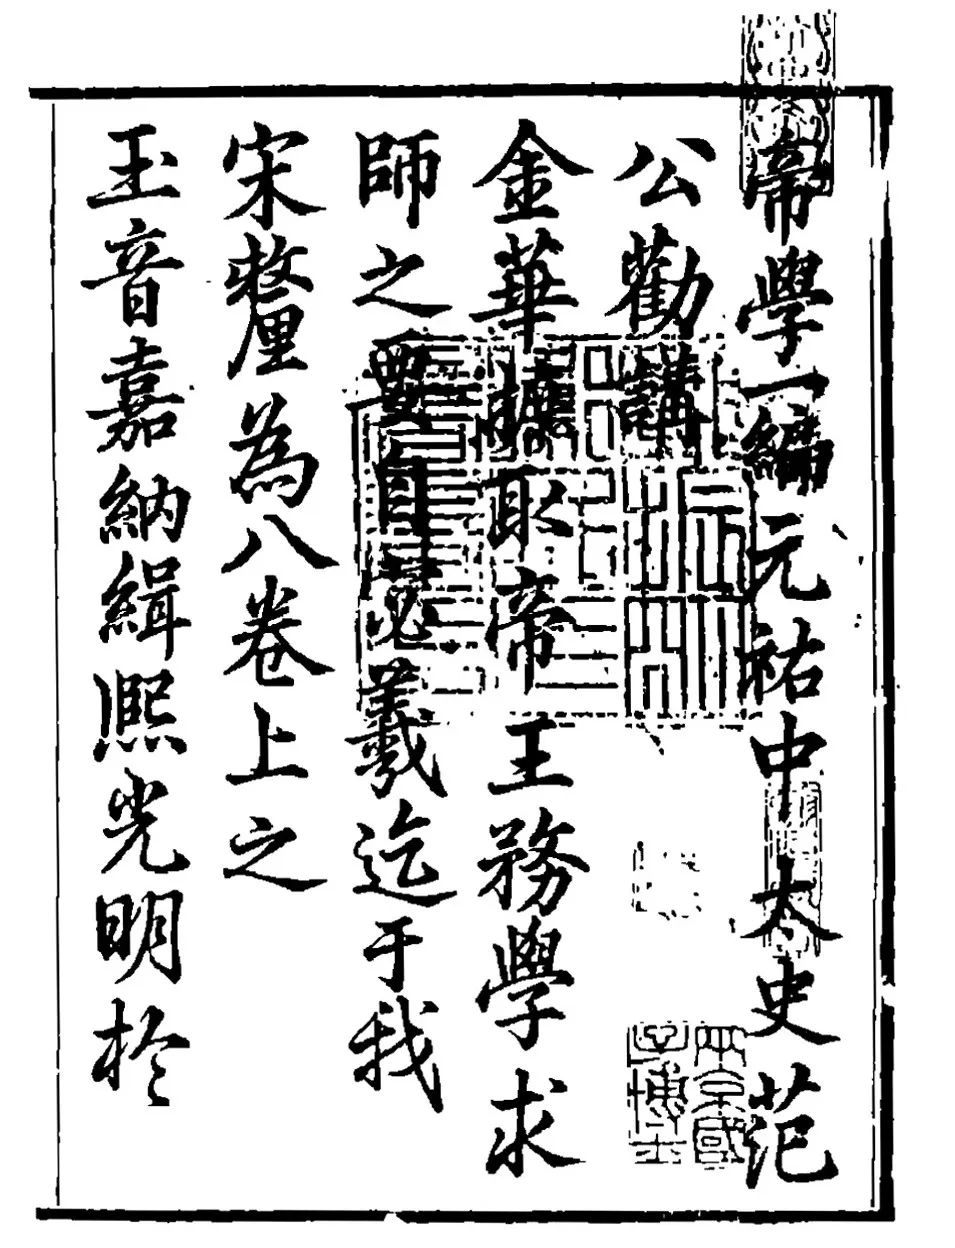 帝學一編元祐中太史范
公勸講
金華攟取帝王務學求
師之要自宓羲迄于我
宋釐為八卷上之
玉音嘉納緝熈光明於